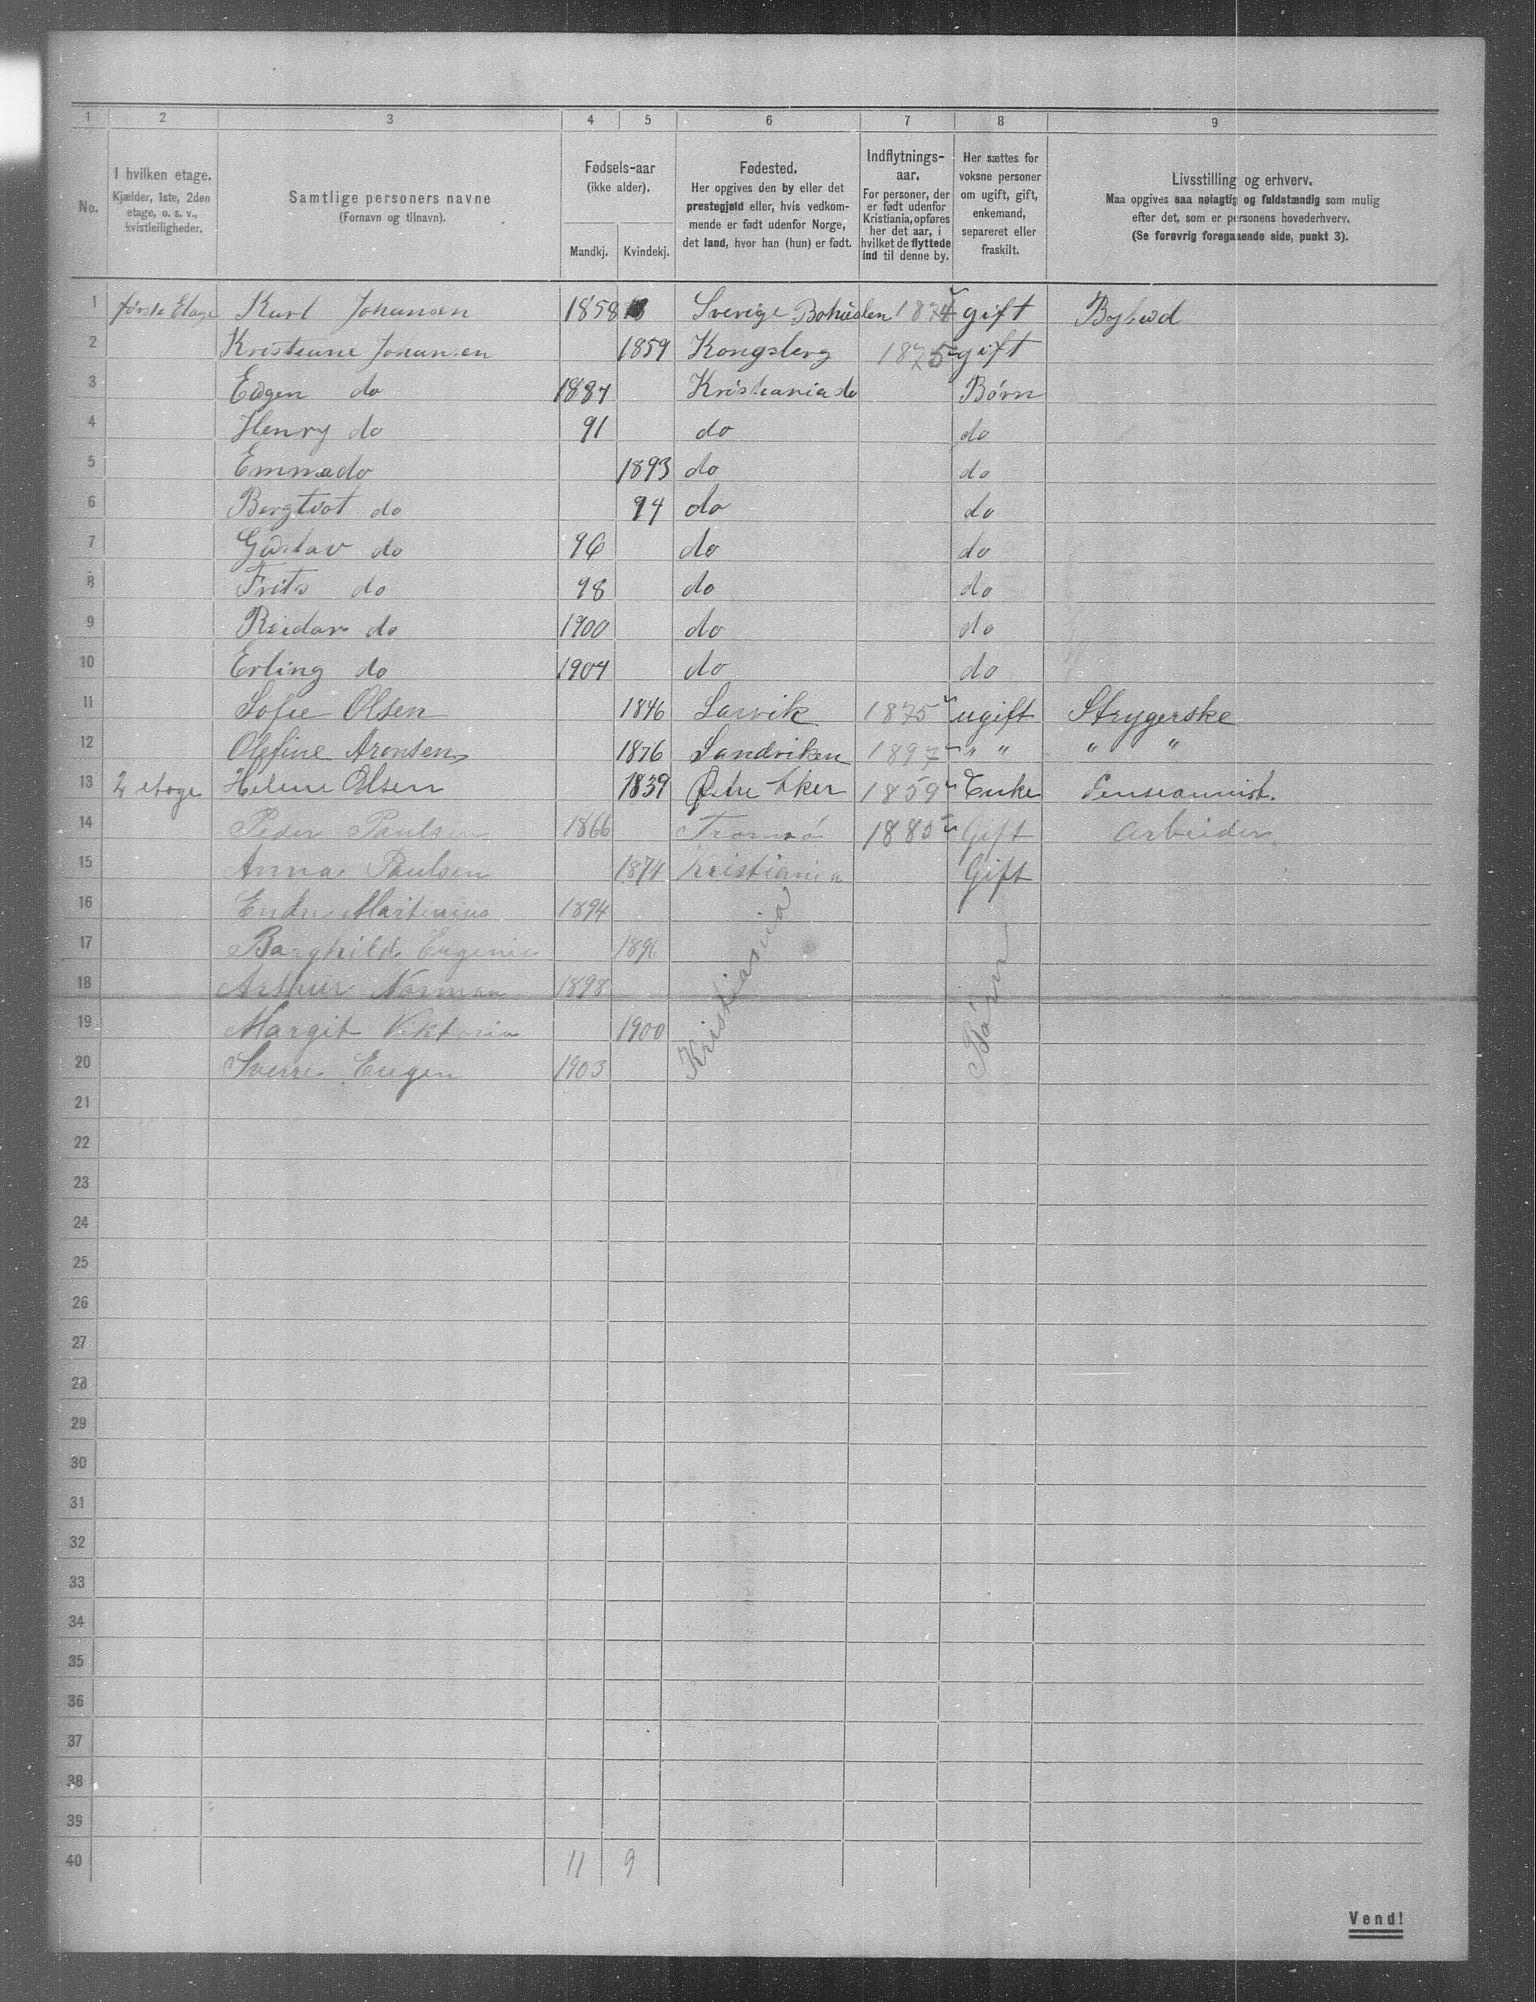 1 2 3 4 5 6 7 8 9
No.
I hvilken etage.
Kjælder, 1ste, 2den
etage, o. s. v.,
kvistleiligheder.
Samtlige personers navne
(Fornavn og tilnavn).
Fødsels-aar
(ikke alder).
Mandkj. Kvindekj.
Fødested.
Her opgives den by eller det
prestegjeld eller, hvis vedkom-
mende er født udenfor Norge,
det land, hvor han (hun) er født.
Indflytnings-
aar.
For personer, der
er født udenfor
Kristiania, opføres
her det aar, i
hvilket de flyttede
ind til denne by.
Her sættes for
voksne personer
om ugift, gift,
enkemand,
separeret eller
fraskilt.
Livsstilling og erhverv.
Maa opgives saa nøiagtig og fuldstændig som mulig
efter det, som er personens hovederhverv.
(Se forøvrig foregaaende side, punkt 3).
1 første Etage Karl Johansen 1858 Sverige Bohuslen 1874 gift
2 Kristiane Johansen 1859 Kongsberg 1875 gift
3 Eogen do 1887 Kristiania do Børn
4 Henry do 91 do do
5 Emma do 1893 do do
6 Bergtvot do 94 do do
7 Gustav do 96 do do
8 Frits do 98 do do
9 Reidar do 1900 do do
10 Erling do 1904 do do
11 Sofie Olsen 1846 Larvik 1875 ugift Strygerske
12 Olefine Aronsen 1876 Sandviken 1897 " " " "
13 2 etage Helene Olsen 1839 Østre Aker 1859 Enke Pensionnist.
14 Peder Paulsen 1866 Tromsø 1885 Gift Arbeider.
15 Anna Paulsen 1874 Kristiania Gift
16 Martinius 1894
17 Borghild Eugenie 1896
18 Arthur Norman 1898
19 Margit Viktoria 1900
20 Sverre Eugen 1903
Kristiania
Børn
21
22
23
24
25
26
27
28
29
30
31
32
33
34
35
36
37
38
39
40 11 9
Vend!